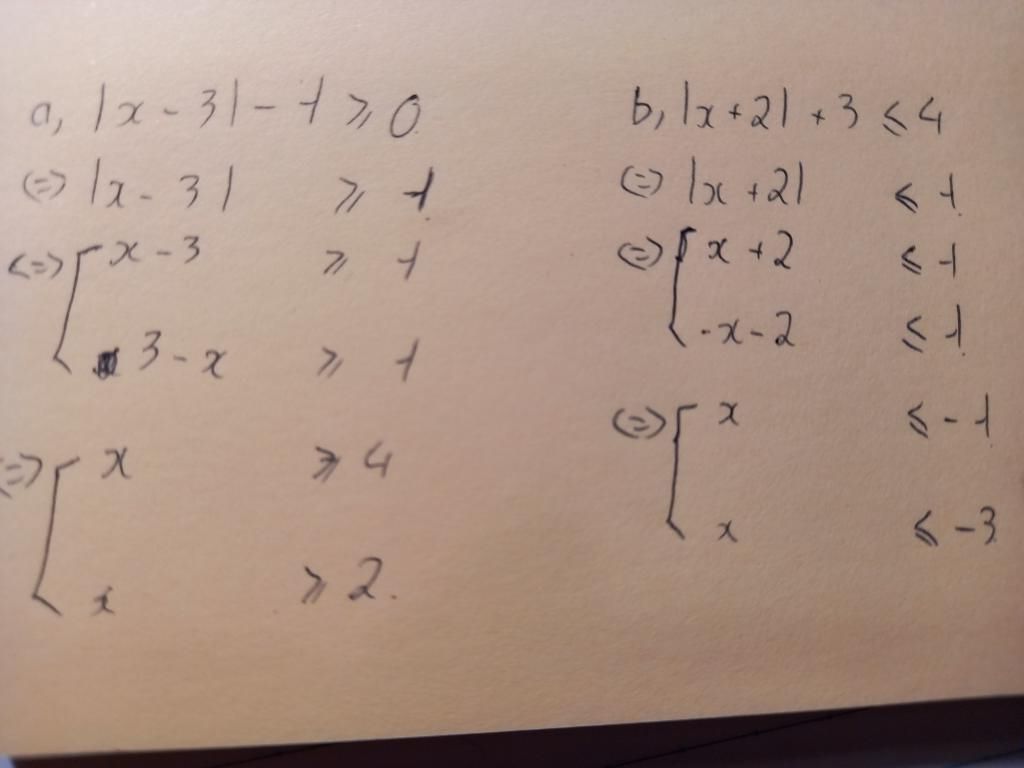 a, |x - 3| - 1 ⩾ 0
(=) |x - 3| ⩾ 1
<=> [ x - 3 ⩾ 1
3 - x ⩾ 1
(=) [ x ⩾ 4
x ⩾ 2.
b, |x + 2| + 3 ⩽ 4
(=) |x + 2| ⩽ 1
(=) [ x + 2 ⩽ 1
-x - 2 ⩽ 1
(=) [ x ⩽ -1
x ⩽ -3